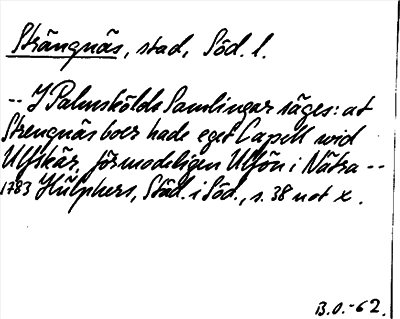 Strängnäs, stad, Söd. l.
-- I Palmskölds Samlingar säges: at
Strengnäs boer hade eget Capell wid
Ulfskär, förmodeligen Ulfön i Nätra --
1783 Hülphers, Städ. i Söd., s. 38 not x.
B.O.-62.